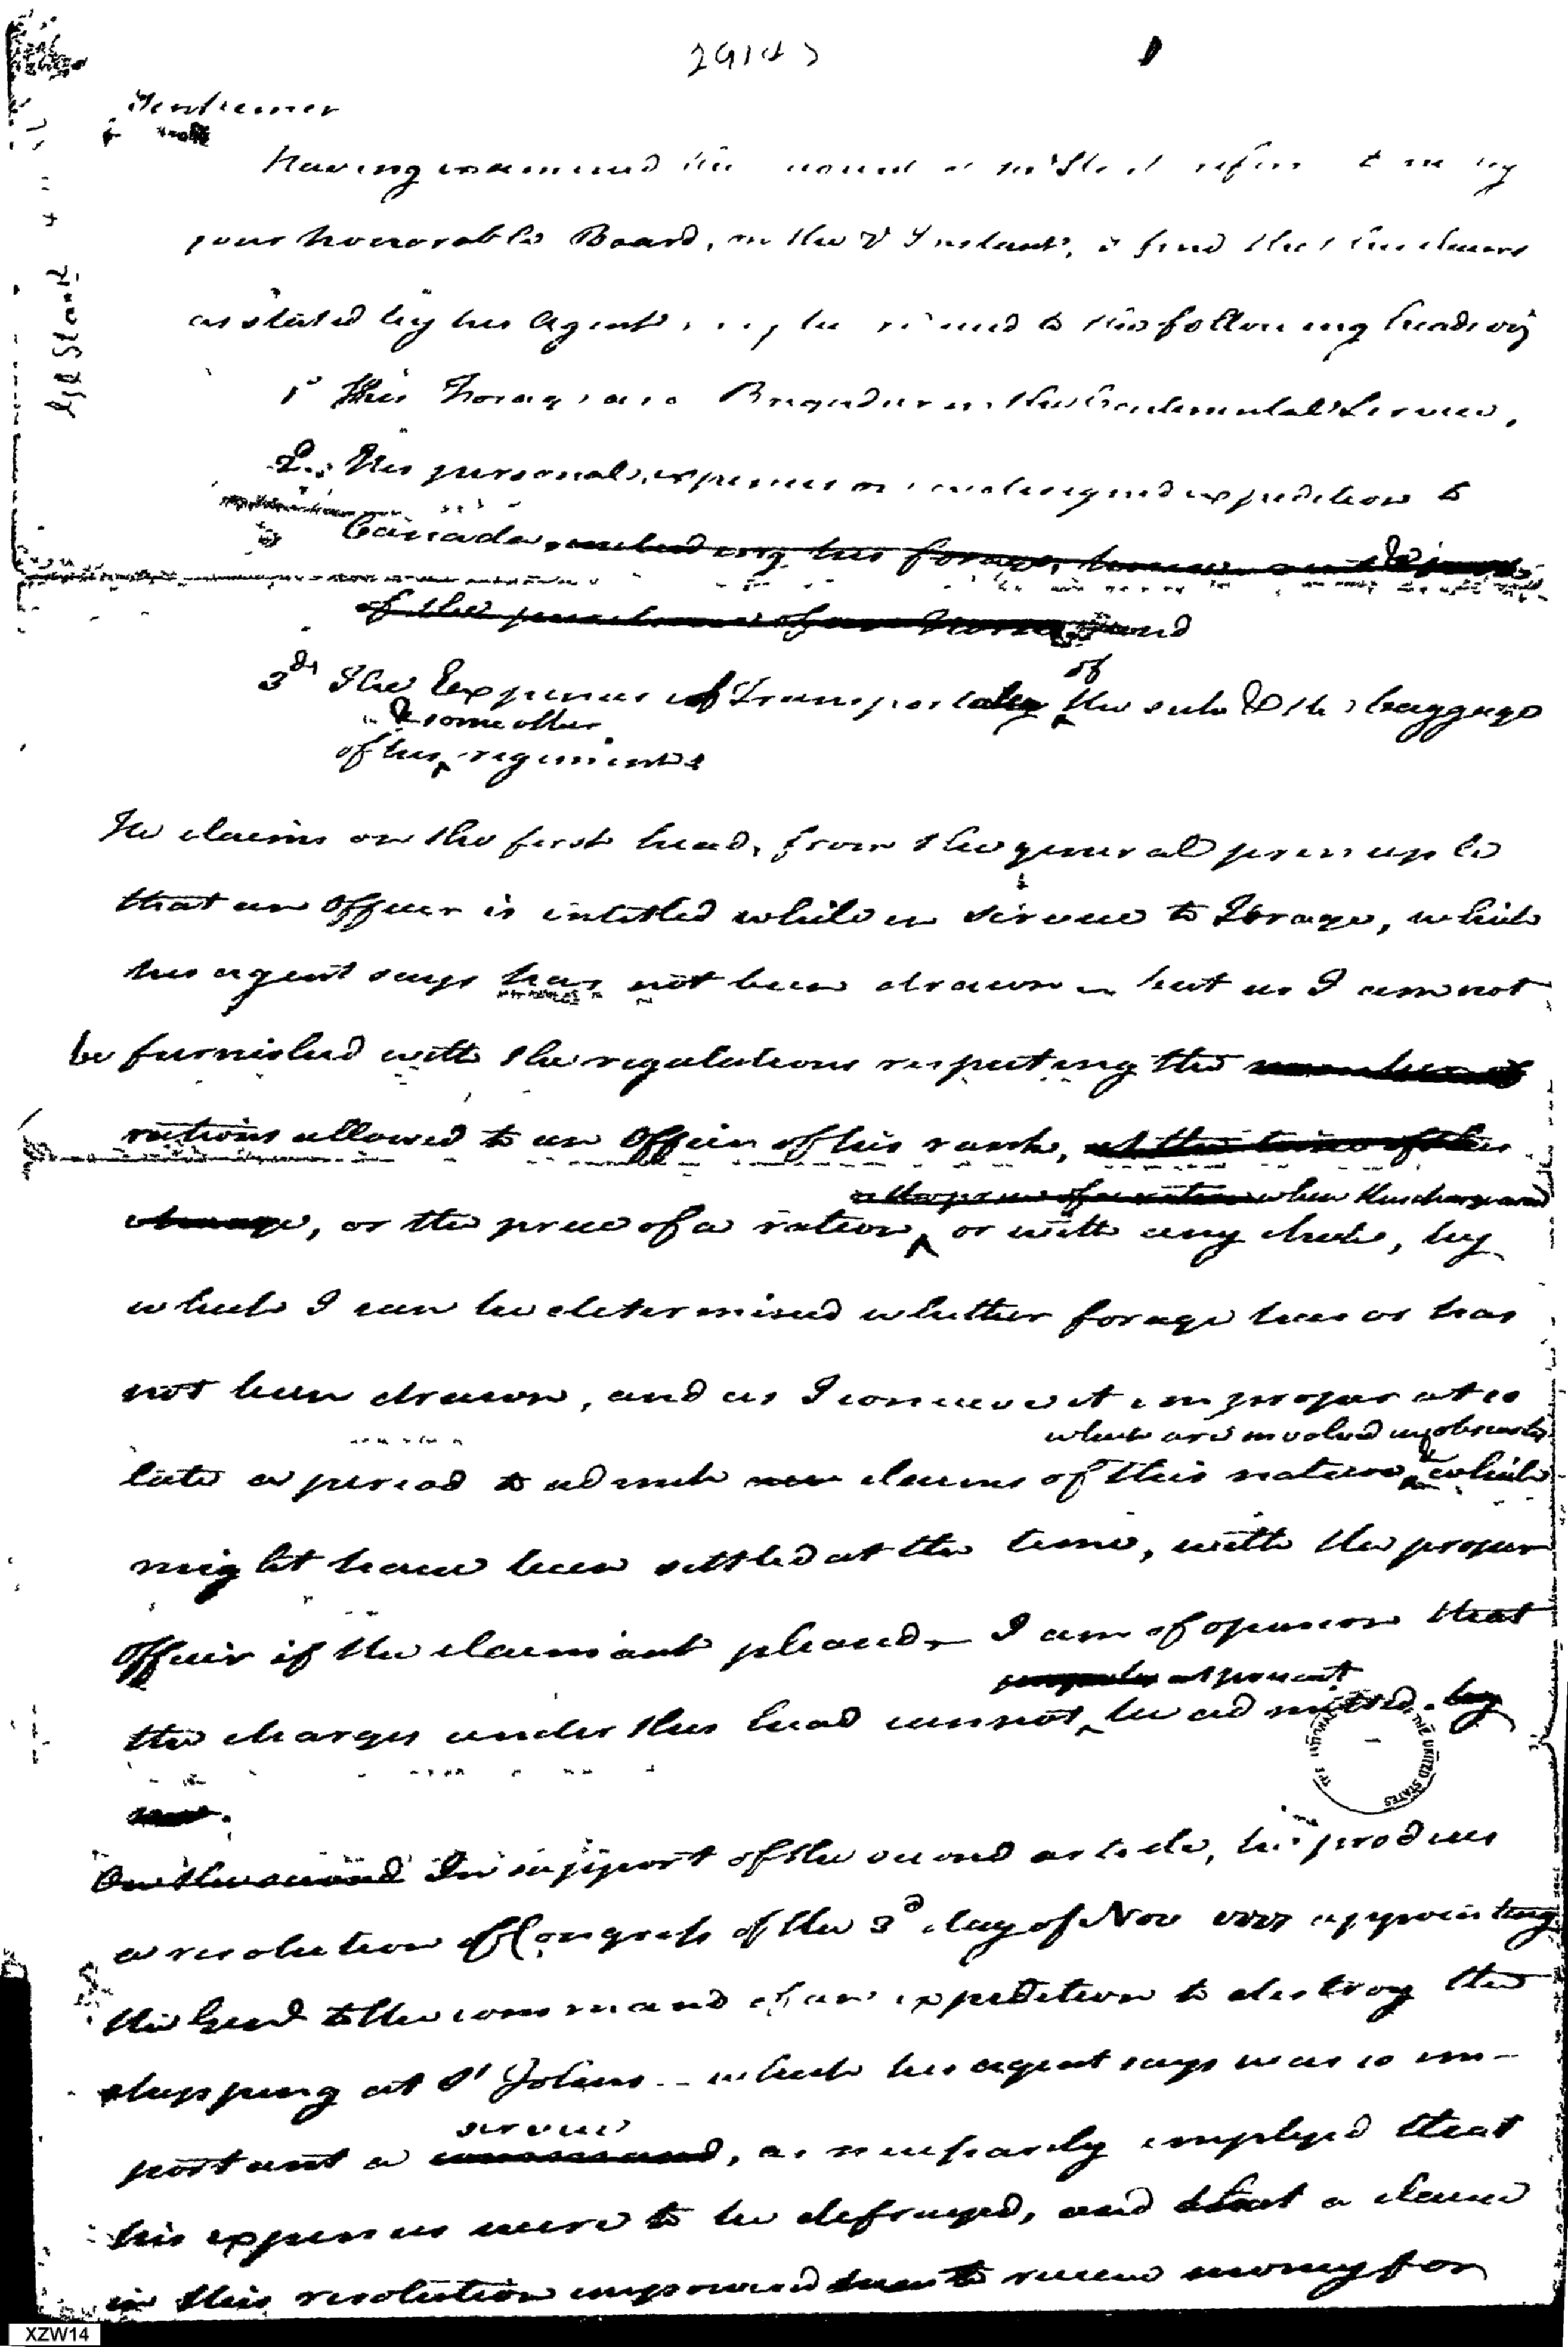 Gentlemen
Having examined the
your honorable Board, on the Instant, I find that the claims
as stated by his Agent, may be to the following heads viz
1st His Forage as a Brigadier in the Continental Service,
2d. His personal expenses on an designed expedition to
Canada, including his forage,
of the purchase of a horse and
3dly The Expense of Transportation of the baggage
& some other
of his regiments
Gl Stark
He claims on the first head, from the general principle
that an Officer is intitled while in service to Forage, which
his agent says has not been drawn – but as I am not
be furnished with the regulations respecting the number of
rations allowed to an Officer of his rank, at the time of his
or the price of a ration when this charge
charge, or the price of a ration, or with any check, by
which I can be determined whether forage has or has
not been drawn, and as I conceive it improper at so
which are involved in obscurity
late a period to admit claims of this nature, & which
might have been settled at the time, with the proper
Officer if the claimant pleased – I am of opinion that
at present
the charges under this head cannot be admitted. by
THE UNITED STATES
On the second In support of the second article, he produces
a resolution of Congress of the 3d day of Nov 1777 appointing
the Genl to the command of an expedition to destroy the
shipping at St Johns – which his agent says was so im-
service
portant a command, as necessarily implyed that
his expenses were to be defrayed, and that a clause
in this resolution impowered him to receive money for
XZW14